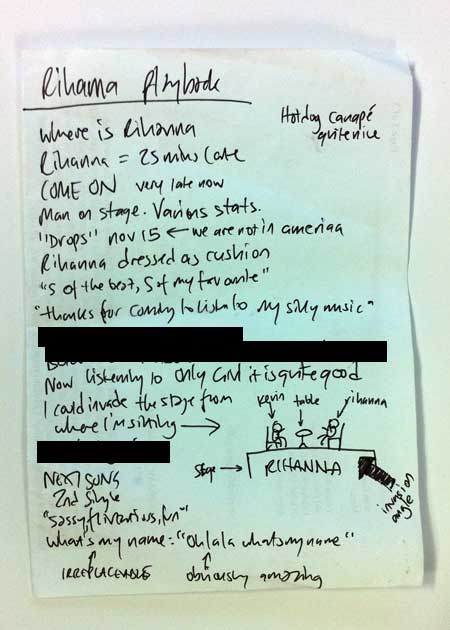 Rihanna Playback
Hotdog canapé
quite nice
Where is Rihanna
Rihanna = 25 mins late
COME ON very late now
Man on stage. Various stats.
"Drops" nov 15 ← we are not in america
Rihanna dressed as cushion
"5 of the best, 5 of my favourite"
"thanks for coming to listen to my silly music"
Now listening to Only Girl it is quite good
I could invade the stage from
where I'm sitting →
Kevin table rihanna
Stage → RIHANNA
invasion
angle
NEXT SONG
2nd single
"sassy, flirtatious, fun"
What's my name: "Oh la la whats my name"
IRREPLACEABLE obviously amazing